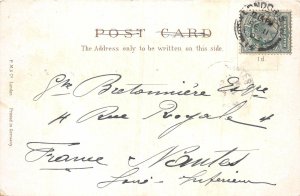 LONDON
POST CARD
The Address only to be written on this side.
1d.
Bretonnière Esqre
4 Rue Royale
France Nantes
Loire Inférieure
Printed in Germany